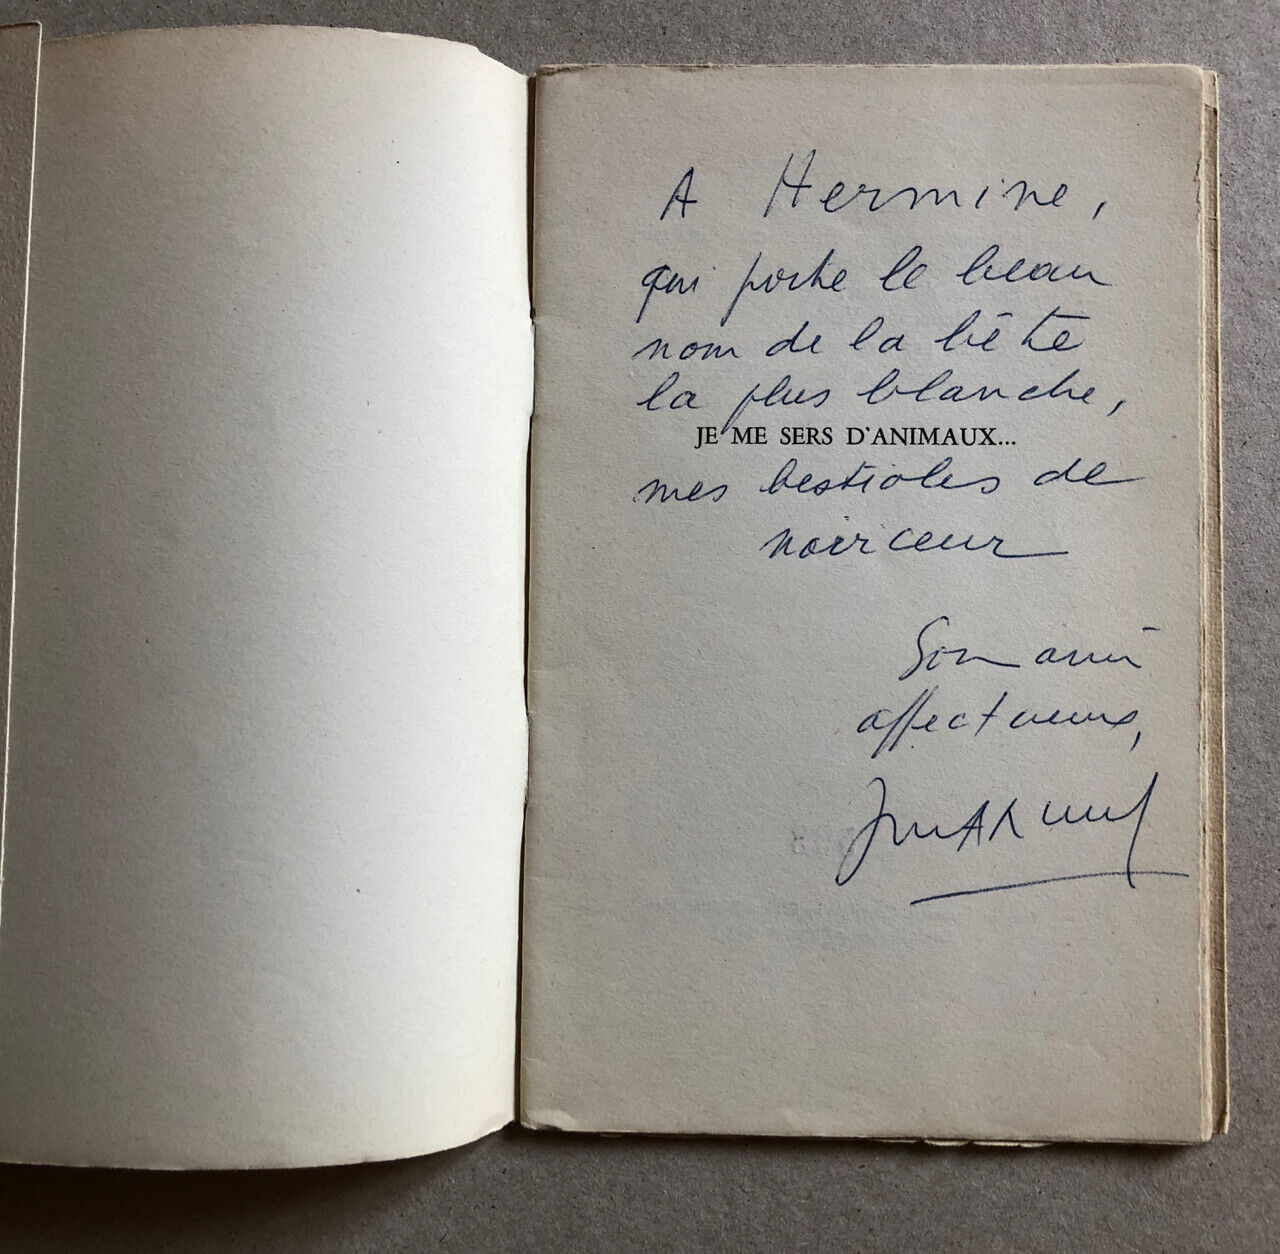 A Hermine,
qui porte le beau
nom de la bête
la plus blanche,
JE ME SERS D'ANIMAUX...
mes bestioles de
noirceur
Son ami
affectueux,